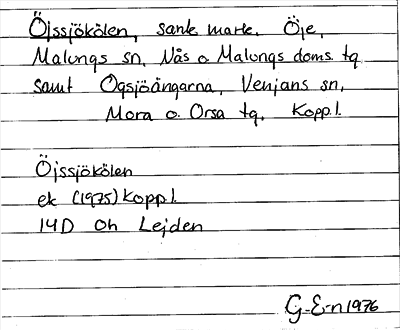 Öjssjökölen, sank mark. Öje,
Malungs sn, Nås o Malungs doms. tg
samt Ogsjöängarna, Venjans sn,
Mora o. Orsa tg, Kopp.l.
Öjssjökölen
ek (1975) Kopp.l.
14D 0h Lejden
G-E-n 1976